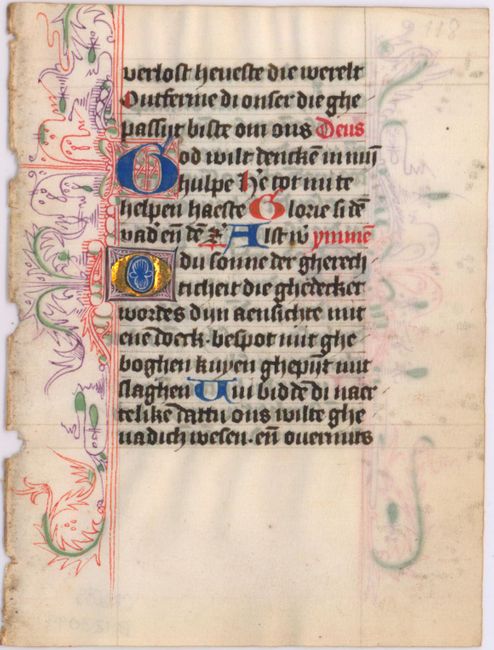 118
verlost heueste die werelt
Ontferme di onser die ghe
passijt biste om ons Deus
God wilt dencke̅ in mijn
hulpe h̕e tot mi te
helpen haeste Glorie si de̅
vad̕ en̅ de̅ Alst w̕ ymme̅
O du sonne der gherech
ticheit die ghedecket
wordes dijn aensichte mit
ene̅ doeck. bespot mit ghe
boghen knyen ghepijnt mit
slaghen Wi bidde̅ di naer
telike dattu ons wilte ghe
nadich wesen. en̅ ouermits